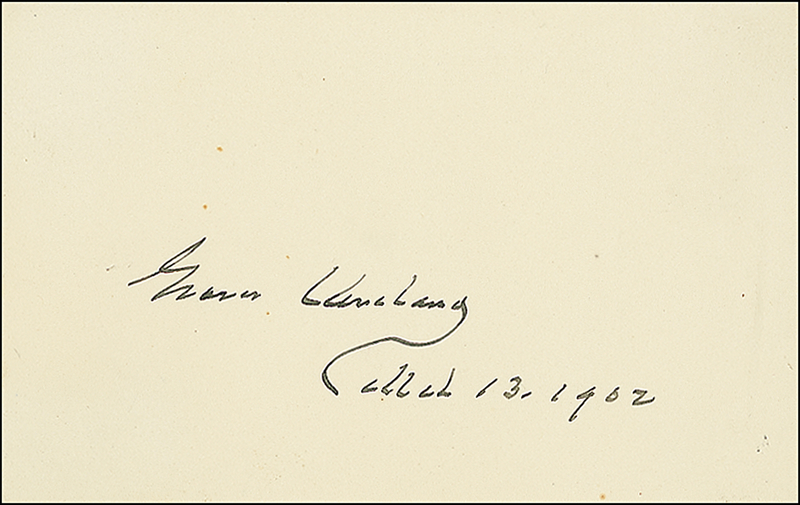 Grover Cleveland
March 13. 1902